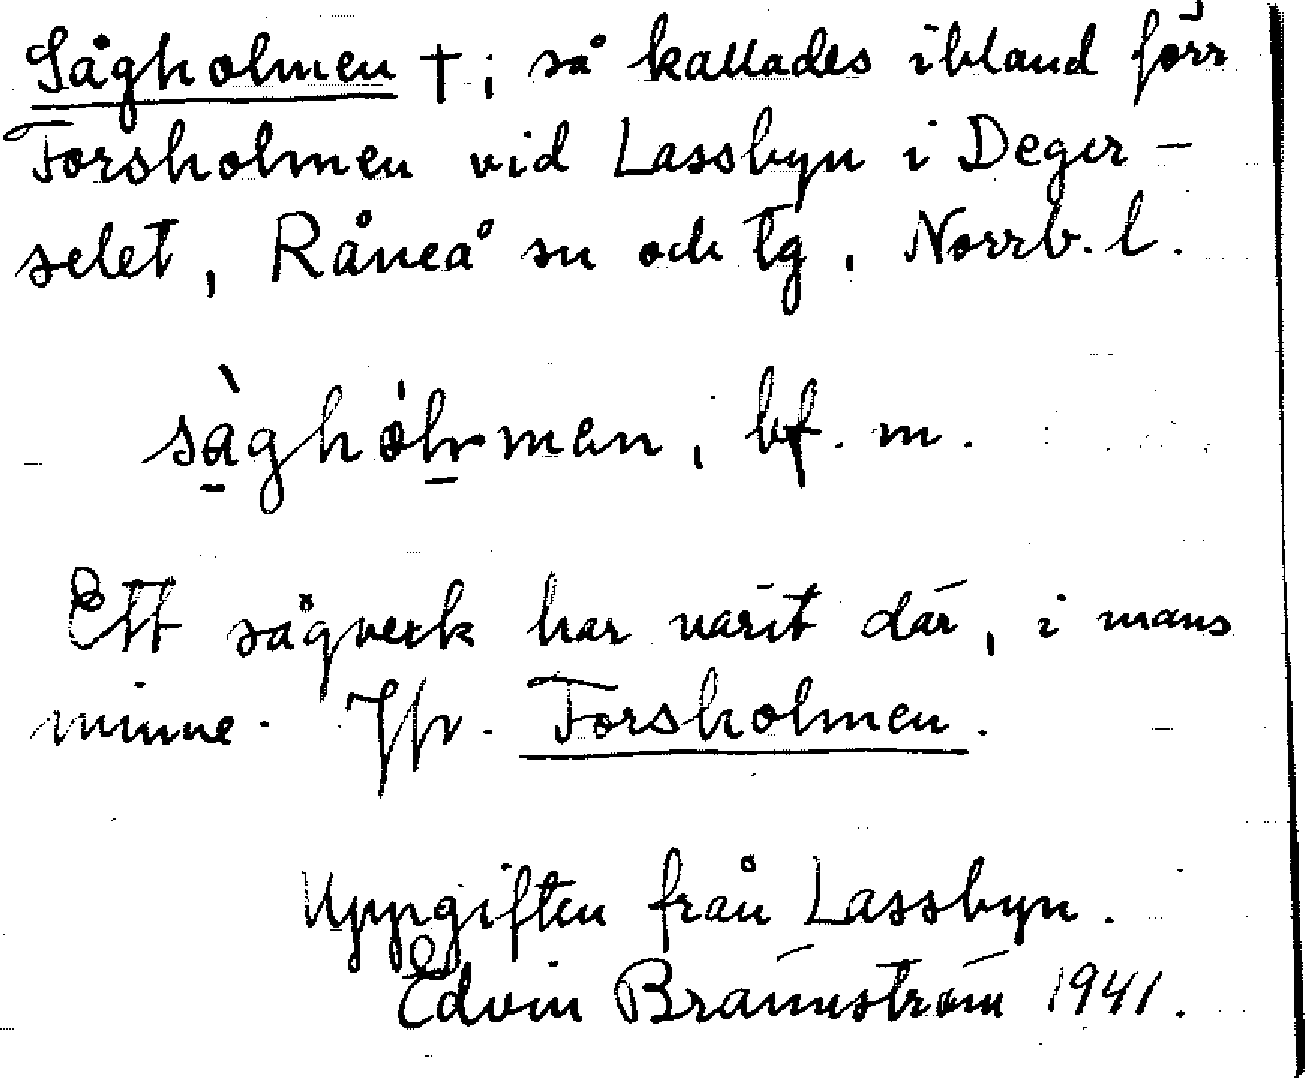 Sågholmen †; så kallades ibland förr
Forsholmen vid Lassbyn i Deger-
selet, Råneå sn och tg, Norrb. l.
sàghólmen, bf. m.
Ett sågverk har varit där, i mans
minne. Jfr. Forsholmen.
Uppgiften från Lassbyn.
Edvin Brännström 1941.